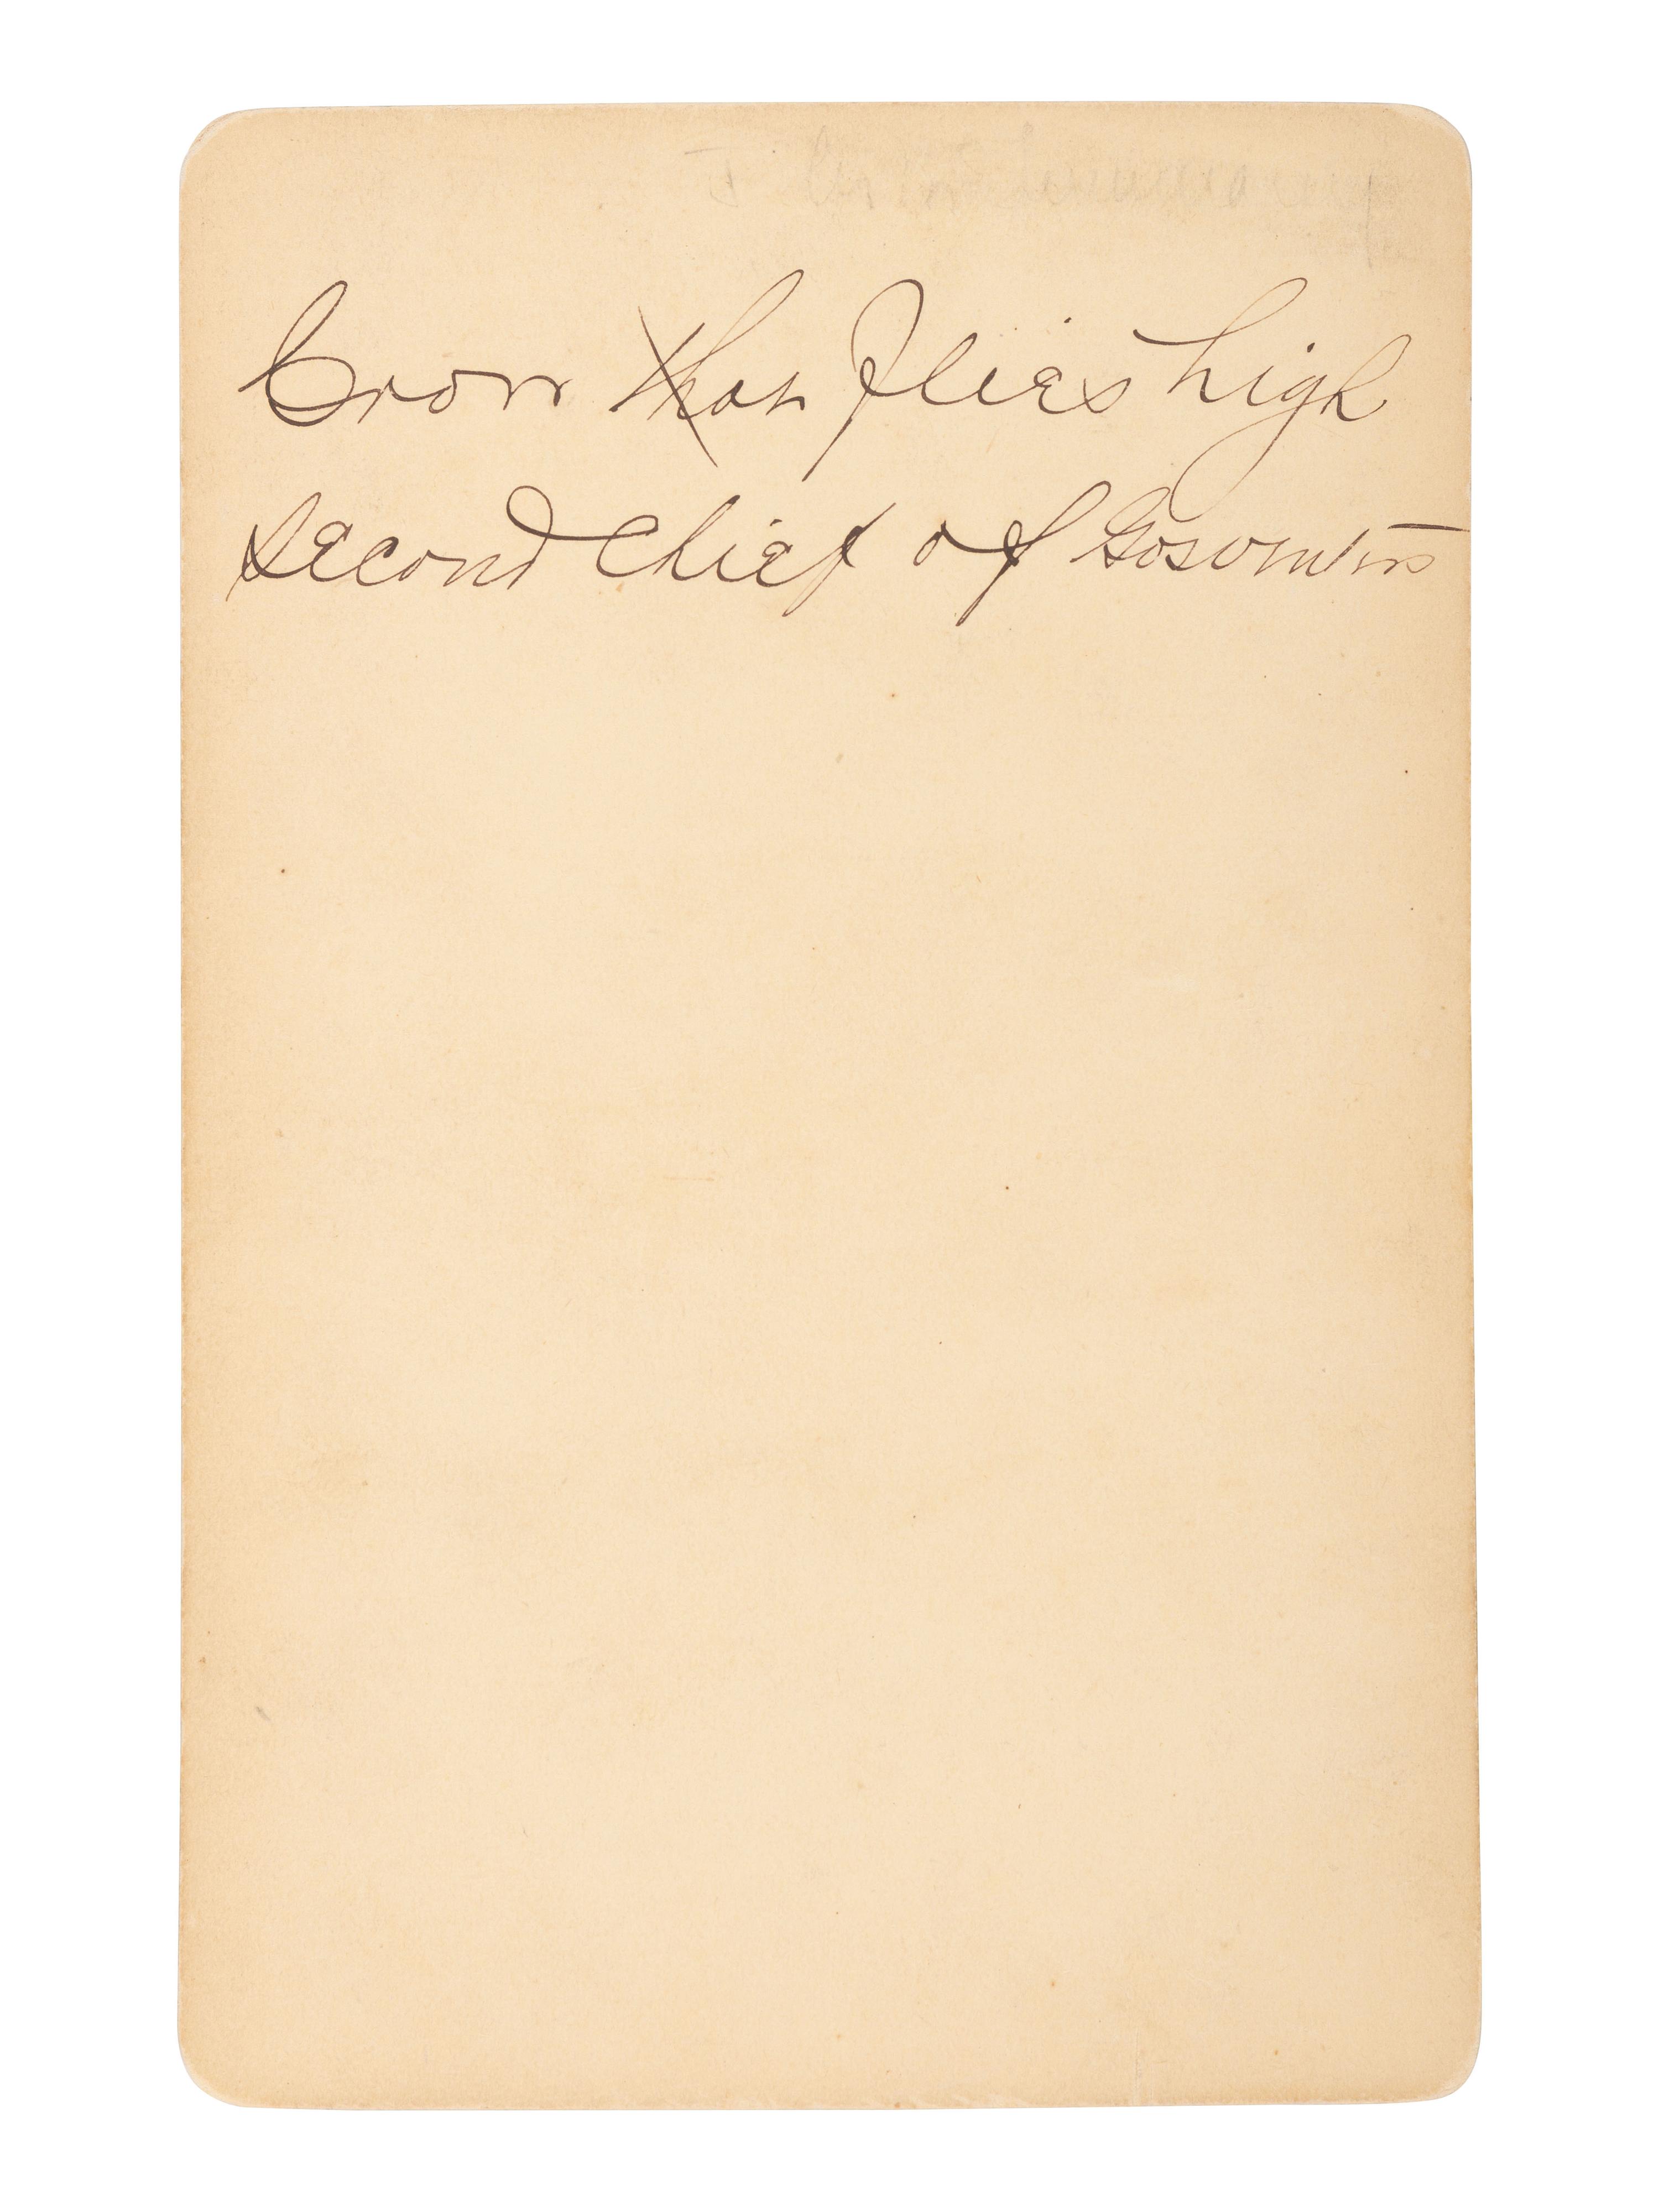 Crow that flies high
second chief of